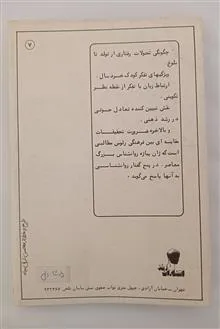 ۷
چگونگی تحولات رفتاری از تولد تا
بلوغ.
ویژگیهای تفکر کودک خردسال.
ارتباط زبان با تفکر از نقطه نظر
تکوینی.
نقش تبیین کننده تعادل جوئی
در رشد ذهنی.
و بالاخره ضرورت تحقیقات
مقایسه ای بین فرهنگی رئوس مطالبی
است که ژان پیاژه روانشناس بزرگ
معاصر، در پنج گفتار روانشناسی
به آنها پاسخ می‌گوید.
تهران ـ خیابان آزادی ـ جیهون